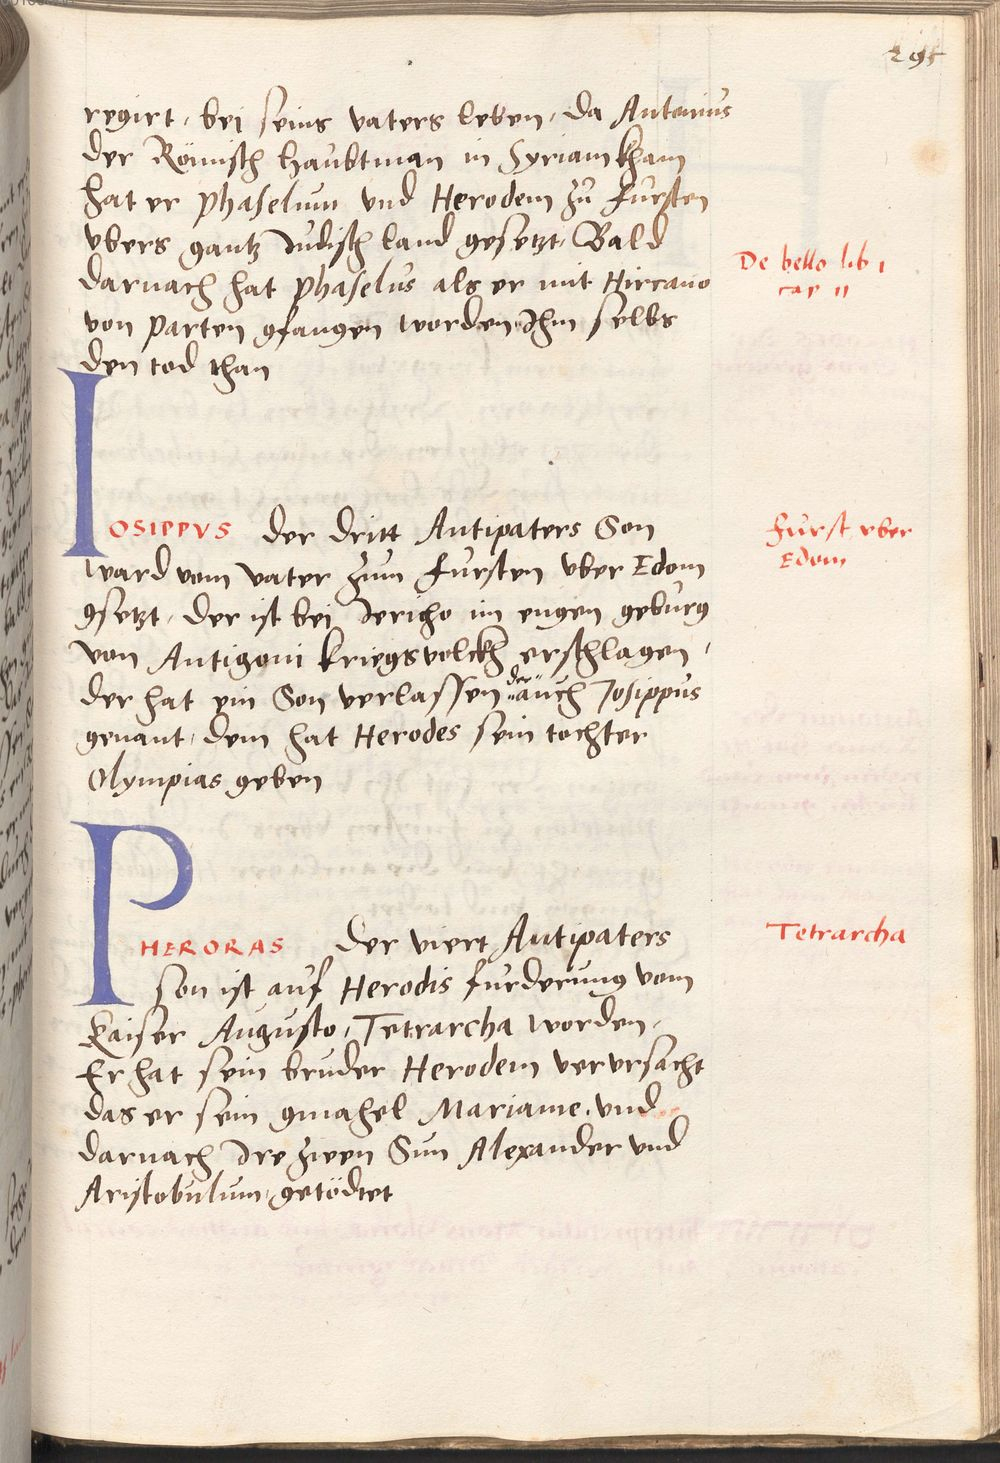 295
regirt, bei seins vaters leben, da Antonius
der Römisch haubtman in Syriam kham
hat er Phaselum und Herodem zu fursten
vbers gantz Judisch land gesetzt, Bald
darnach hat Phaselus als er mit Hircano
De bello lib 1
cap 11
von Parten gfangen worden Ihm selbs
den tod than
IOSIPPVS der dritt Antipaters Son
Furst vber
Edom
ward vom vater zum fursten vber Edom
gsetzt, der ist bei Jericho im engen geburg
von Antigoni kriegsvolckh erschlagen,
der hat ein Son verlassen der auch Josippus
genant, dem hat Herodes sein tochter
Olympias geben
PHERORAS der viert Antipaters
Tetrarcha
son ist auf Herodis furderung vom
Kaiser Augusto, Tetrarcha worden,
Er hat sein bruder Herodem verursacht
das er sein gmahel Mariame, vnd
darnach Jre zween Sun Alexander vnd
Aristobulum, getödtet